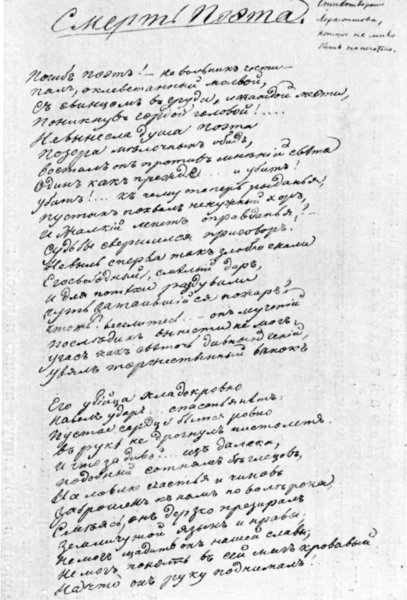 Смерть Поэта.
Стихотворение
Лермонтова,
Погибъ поэтъ! — невольникъ чести —
палъ, оклеветанный молвой,
съ свинцомъ въ груди, и жаждой мести,
Поникнувъ гордой головой!....
Не вынесла душа поэта
Позора мѣлочныхъ обидъ,
возсталъ онъ противъ мнѣній свѣта
Одинъ какъ прежде .... и убитъ!
убитъ!... къ чему теперь рыданья,
пустыхъ похвалъ ненужный хоръ,
и жалкій лепетъ оправданья!—
судьбы свершился приговоръ!
Не вы-ль сперва такъ злобно гнали
Его свободный, смѣлый даръ,
и для потѣхи раздували
чуть затаившійся пожаръ?
что-жъ? веселитесь... — онъ мученій
послѣднихъ вынести не могъ,
угасъ какъ свѣточь дивный геній,
увялъ торжественный вѣнокъ
Его убійца хладнокровно
навелъ ударъ... спасенья нѣтъ.
Пустое сердце бьется ровно
въ рукѣ не дрогнулъ пистолетъ.
И что за диво?... изъ далека,
подобный сотнямъ бѣглецовъ,
На ловлю счастья и чиновъ
Заброшенъ къ намъ по волѣ рока,
Смѣясь, онъ дерзко презиралъ
Земли чужой языкъ и нравы;
Не могъ щадить онъ нашей славы,
Не могъ понять въ сей мигъ кровавый
На что онъ руку поднималъ!